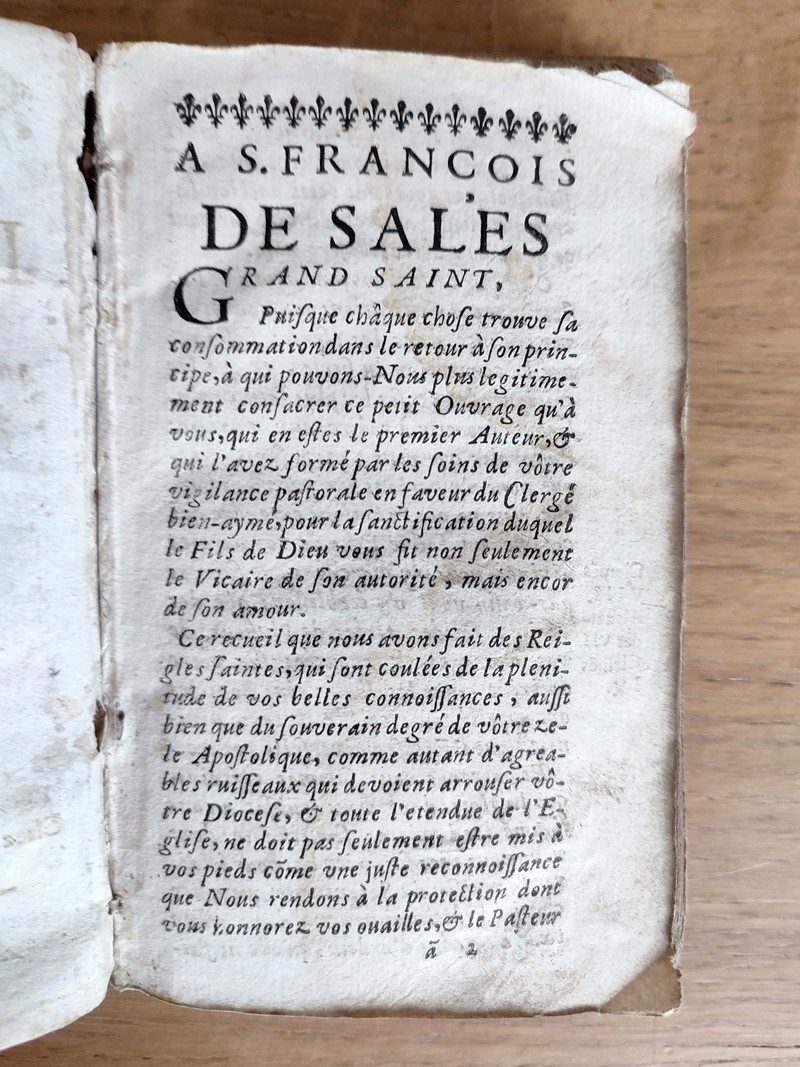 A S. FRANÇOIS
DE SALES
GRAND SAINT,
Puiſque châque choſe trouve ſa
conſommation dans le retour à ſon prin-
cipe, à qui pouvons-Nous plus legitime-
ment conſacrer ce petit Ouvrage qu'à
vous, qui en eſtes le premier Auteur, &
qui l'avez formé par les ſoins de vôtre
vigilance paſtorale en faveur du Clergé
bien-aymé, pour la ſanctification duquel
le Fils de Dieu vous fit non ſeulement
le Vicaire de ſon autorité, mais encor
de ſon amour.
Ce recueil que nous avons fait des Rei-
gles ſaintes, qui ſont coulées de la pleni-
tude de vos belles connoiſſances, auſſi
bien que du ſouverain degré de vôtre ze-
le Apoſtolique, comme autant d'agrea-
bles ruiſſeaux qui devoient arrouſer vô-
tre Dioceſe, & toute l'etendue de l'E-
gliſe, ne doit pas ſeulement eſtre mis à
vos pieds cõme vne juſte reconnoiſſance
que Nous rendons à la protection dont
vous honnorez vos ouailles, & le Paſteur
ã 2